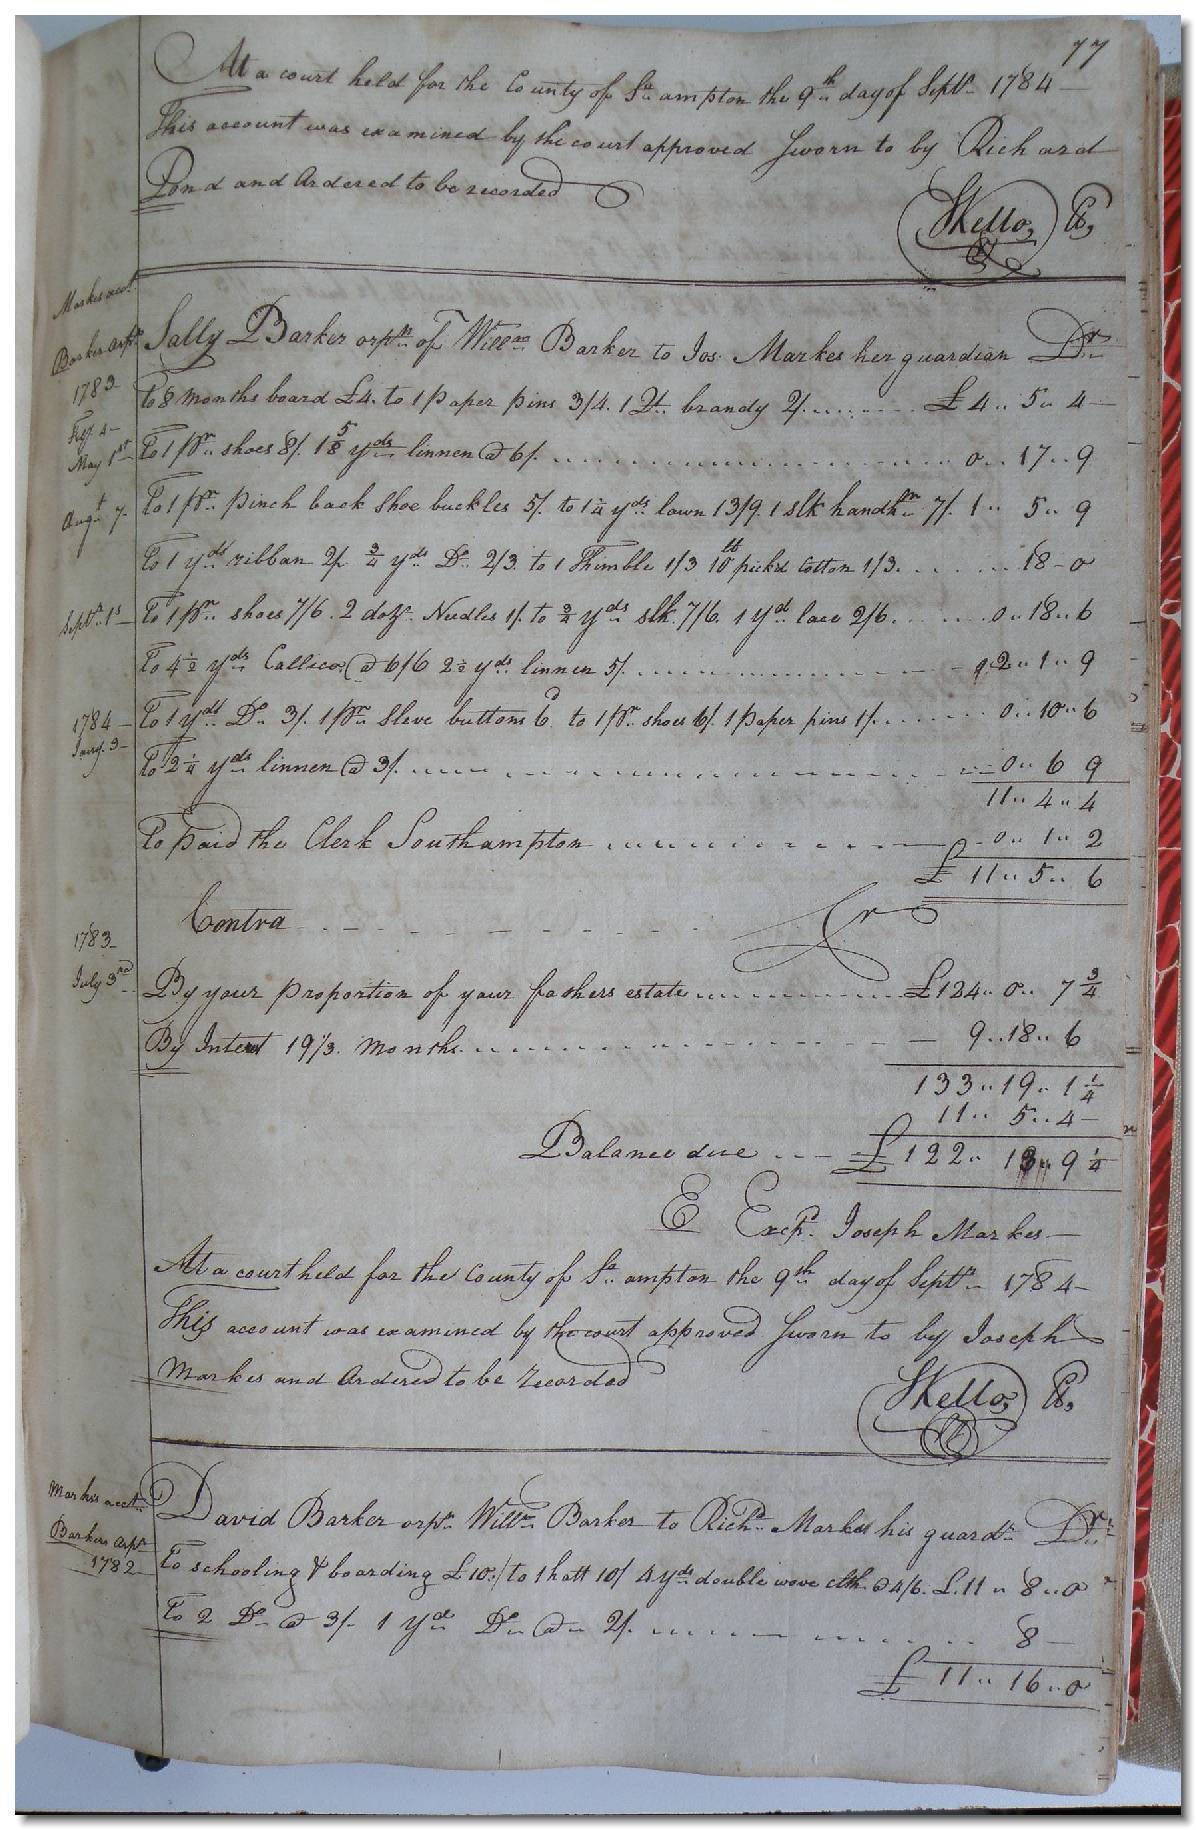 77
At a court held for the County of Sº ampton the 9th day of Septr 1784
This account was examined by the court approved Sworn to by Richard
Pond and Ordered to be recorded
SKello, Ct,
Markes acct
Barker orpn
Sally Barker orpn of Willm Barker to Jos. Markes her guardian Dr
1783
To 8 months board £4. to 1 paper pins 3/4. 1 Qt. brandy 2/. £4 .. 5 .. 4
May 1st To 1 pr shoes 8/ 1 5/8 yds linnen @ 6/. 0 .. 17 .. 9
Augt 7. To 1 pr pinch back shoe buckles 5/. to 1 1/4 yds lawn 13/9. 1 slk handkn 7/. 1 .. 5 .. 9
To 1 yds ribban 2/. 3/4 yds Do 2/3. to 1 Thimble 1/3 10lb pickd Cotton 1/3. 18 - 0
Septr 1s To 1 pr shoes 7/6. 2 dozn Needles 1/. to 3/4 yds slk. 7/6. 1 yd lace 2/6. 0 .. 18 .. 6
To 4 1/2 yds Callico @ 6/6 2 1/2 yds linnen 5/. 2 .. 1 .. 9
1784 To 1 yds Do 3/. 1 pr Sleve buttons 6d. to 1 pr shoes 6/. 1 paper pins 1/. 0 .. 10 .. 6
Jany. 3 To 2 1/4 yds linnen @ 3/. 0 .. 6 9
11 .. 4 .. 4
To paid the Clerk Southampton 0 .. 1 .. 2
£ 11 .. 5 .. 6
Contra Cr
1783
July 3rd By your proportion of your fathers estate £124 .. 0 .. 7 3/4
By Interest 19 1/3. Months 9 .. 18 .. 6
133 .. 19 .. 1 1/4
11 .. 5 .. 4
Balance due £ 122 .. 13 .. 9 1/4
E Excpd. Joseph Markes
At a court held for the County of Sº ampton the 9th day of Septr 1784
This account was examined by the court approved Sworn to by Joseph
Markes and Ordered to be Recorded
SKello, Ct,
Markes acct
Barkers orpn
David Barker orpn Willm Barker to Richd Markes his guardn Dr
1782 To schooling & boarding £10./ to 1 hatt 10/ 4 yds double wove clth @ 4/6. £.11 .. 8 .. 0
To 2 Do @ 3/. 1 yd Do @ 2/. 8
£ 11 .. 16 .. 0